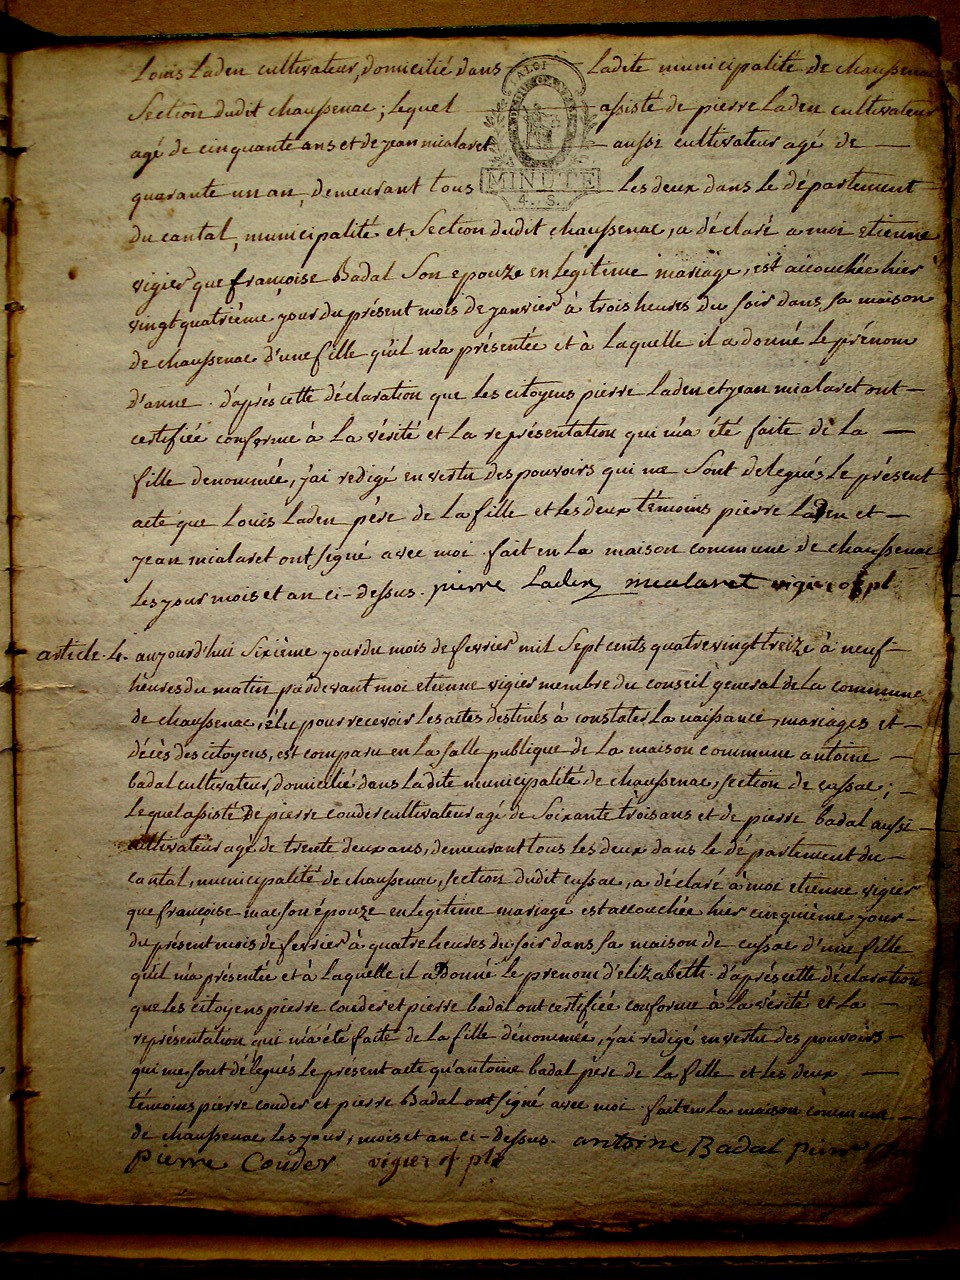 Louis Laden cultivateur, domicilié dans Ladite municipalité de chaussenac
LA LOI
Section dudit chaussenac; lequel assisté de pierre Laden cultivateur
agé de cinquante ans et de jean mialaret aussi cultivateur agé de
quarante un an, demeurant tous les deux dans le département
MINUTE
4. S.
du cantal, municipalité et Section dudit chaussenac, a déclaré a moi etienne
vigier que françoise Badal Son epouze en legitime mariage, est accouchée hier
vingt quatrième jour du présent mois de janvier à trois heures du soir dans sa maison
de chaussenac d'une fille qu'il m'a présentée et à Laquelle il a donné le prénom
d'anne. d'après cette déclaration que les citoyens pierre Laden et jean mialaret ont
certifiée conforme à La vérité et La représentation qui m'a été faite de La
fille denommée, j'ai redigé en vertu des pouvoirs qui me Sont delegués Le présent
acte que Louis Laden père de La fille et Les deux temoins pierre Laden et
jean mialaret ont signé avec moi. fait en La maison commune de chaussenac
Les jour mois et an ci-dessus. pierre Laden mialaret vigier of pl
article 4. aujourd'hui Sixième jour du mois de fevrier mil Sept cents quatre vingt treize à neuf
heures du matin pardevant moi etienne vigier membre du conseil général de La commune
de chaussenac, élu pour recevoir Les actes destinés à constater La naissance, mariages et
décès des citoyens, est comparu en La salle publique de La maison commune antoine
badal cultivateur, domicilié dans Ladite municipalité de chaussenac, section de cussac;
Lequel assisté de pierre couder cultivateur agé de Soixante trois ans et de pierre badal aussi
cultivateur agé de trente deux ans, demeurant tous Les deux dans Le département du
cantal, municipalité de chaussenac, section dudit cussac, a déclaré à moi etienne vigier
que françoise mas son épouze en legitime mariage est accouchée hier cinquième jour
du présent mois de fevrier à quatre heures du soir dans sa maison de cussac d'une fille
qu'il m'a présentée et à Laquelle il a Donné Le prenom d'elizabeth. d'après cette déclaration
que Les citoyens pierre couder et pierre badal ont certifiée conforme à La vérité et La
représentation qui m'a été faite de La fille dénommée, j'ai redigé en vertu des pouvoirs
qui me sont délegués Le présent acte qu'antoine badal père de La fille et Les deux
témoins pierre couder et pierre Badal ont signé avec moi. fait en La maison commune
de chaussenac Les jour, mois et an ci-dessus. antoine Badal pierre
pierre Couder vigier of pl